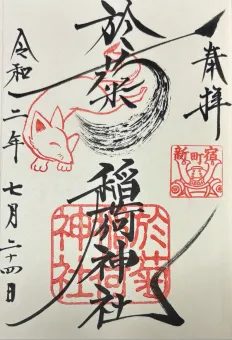 奉拝
新町宿
於菊
稲荷神社
於菊稲荷神社
令和二年七月二十四日